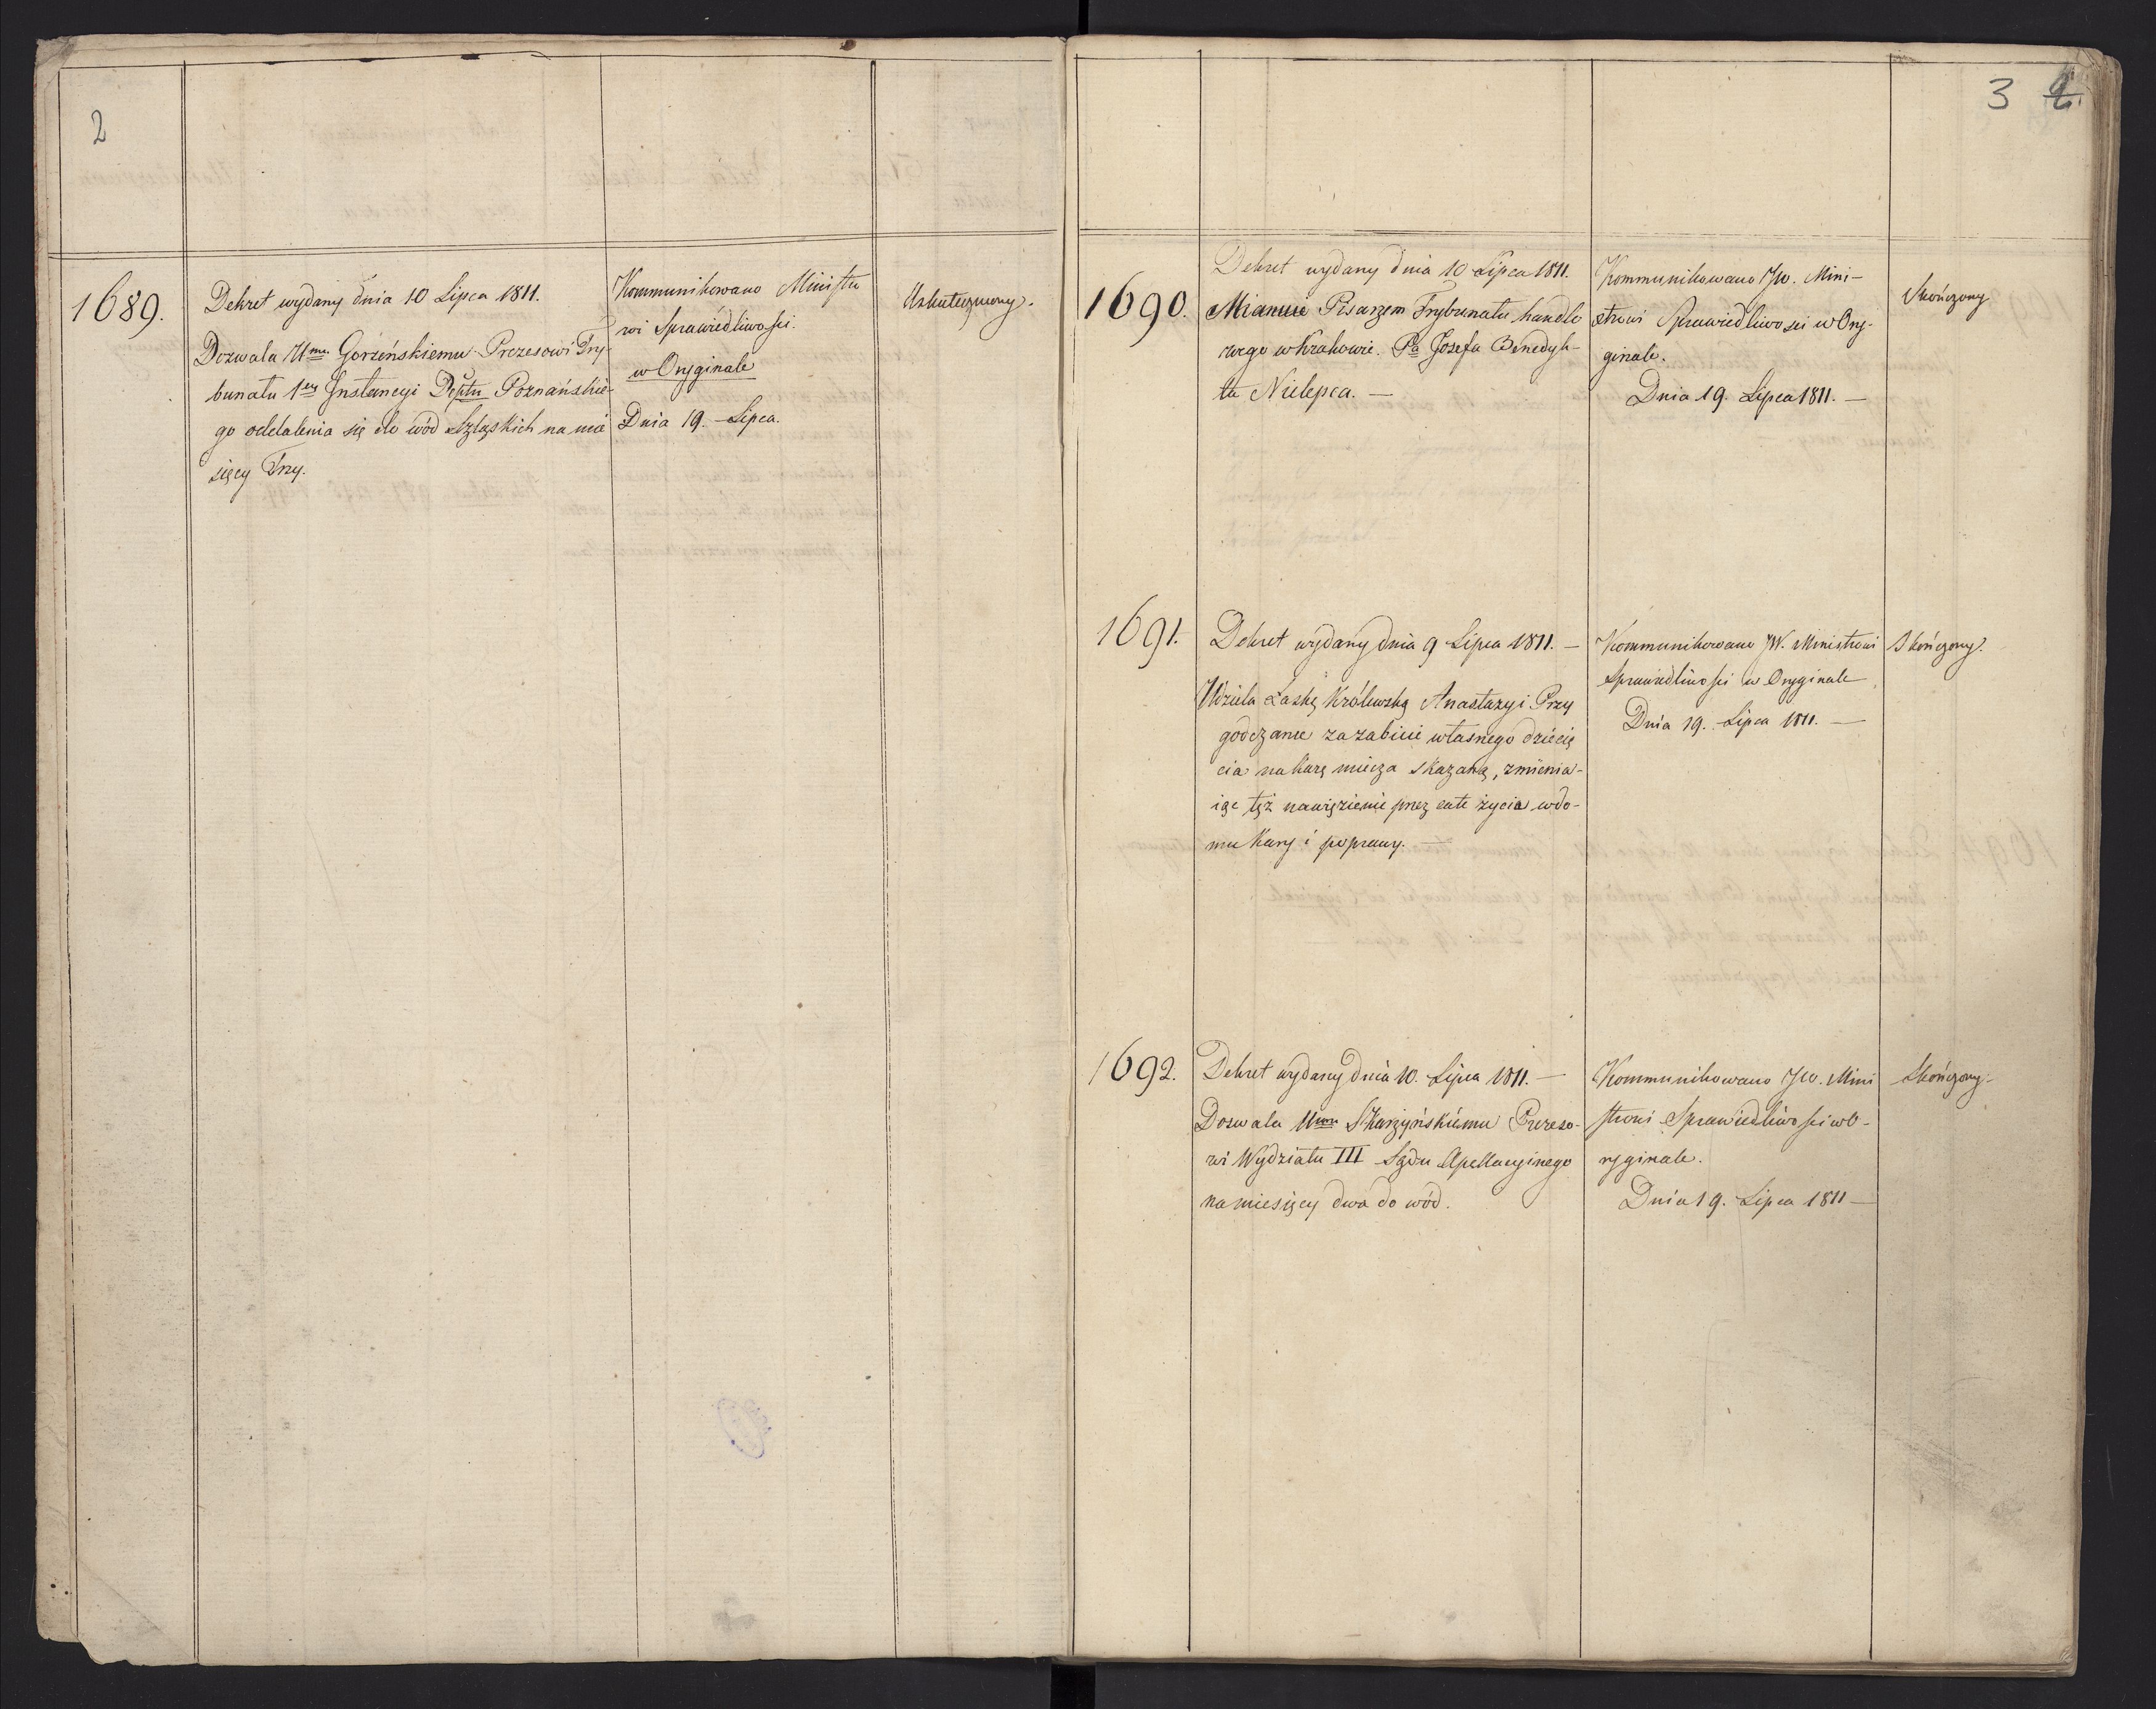 2
1689.
Dekret wydany dnia 10 Lipca 1811.
Dozwala Umu Gorzeńskiemu Prezesowi Try-
bunatu 1ey Instancyi Deptu Poznańskie-
go oddalenia się do wód Szląskich na mie
sięcy Trzy.
Kommunikowano Ministro
wi Sprawiedliwości.
w Oryginale
Dnia 19. Lipca.
Uskuteczniony.
3 2.
1690.
Dekret wydany dnia 10 Lipca 1811.
Mianuie Pisarzem Trybunatu handlo
wego w Krakowie. Pa Josefa Benedyk-
ta Nielepca. —
Kommunikowano JW. Mini-
strowi Sprawiedliwosci w Ory-
ginale.
Dnia 19. Lipca 1811. —
Skończony
1691.
Dekret wydany dnia 9 Lipca 1811. —
Udziela Łaskę Królewską Anastazyi Przy
godczance za zabicie własnego dziecię
cia na karę miecza skazaną, zmienia-
iąc tęż na więzienie przez całe życie w do-
mu Kary i poprawy. —
Kommunikowano JW. Ministrowi
Sprawiedliwości w Oryginale
Dnia 19. Lipca 1811. —
Skończony.
1692.
Dekret wydany dnia 10. Lipca 1811. —
Dozwala Umu Skarzyńskiemu Prezeso-
wi Wydziału III Sądu Apellacyinego
na miesięcy dwa do wód.
Kommunikowano JW. Mini
strowi Sprawiedliwości w O-
ryginale.
Dnia 19. Lipca 1811 —
Skończony.